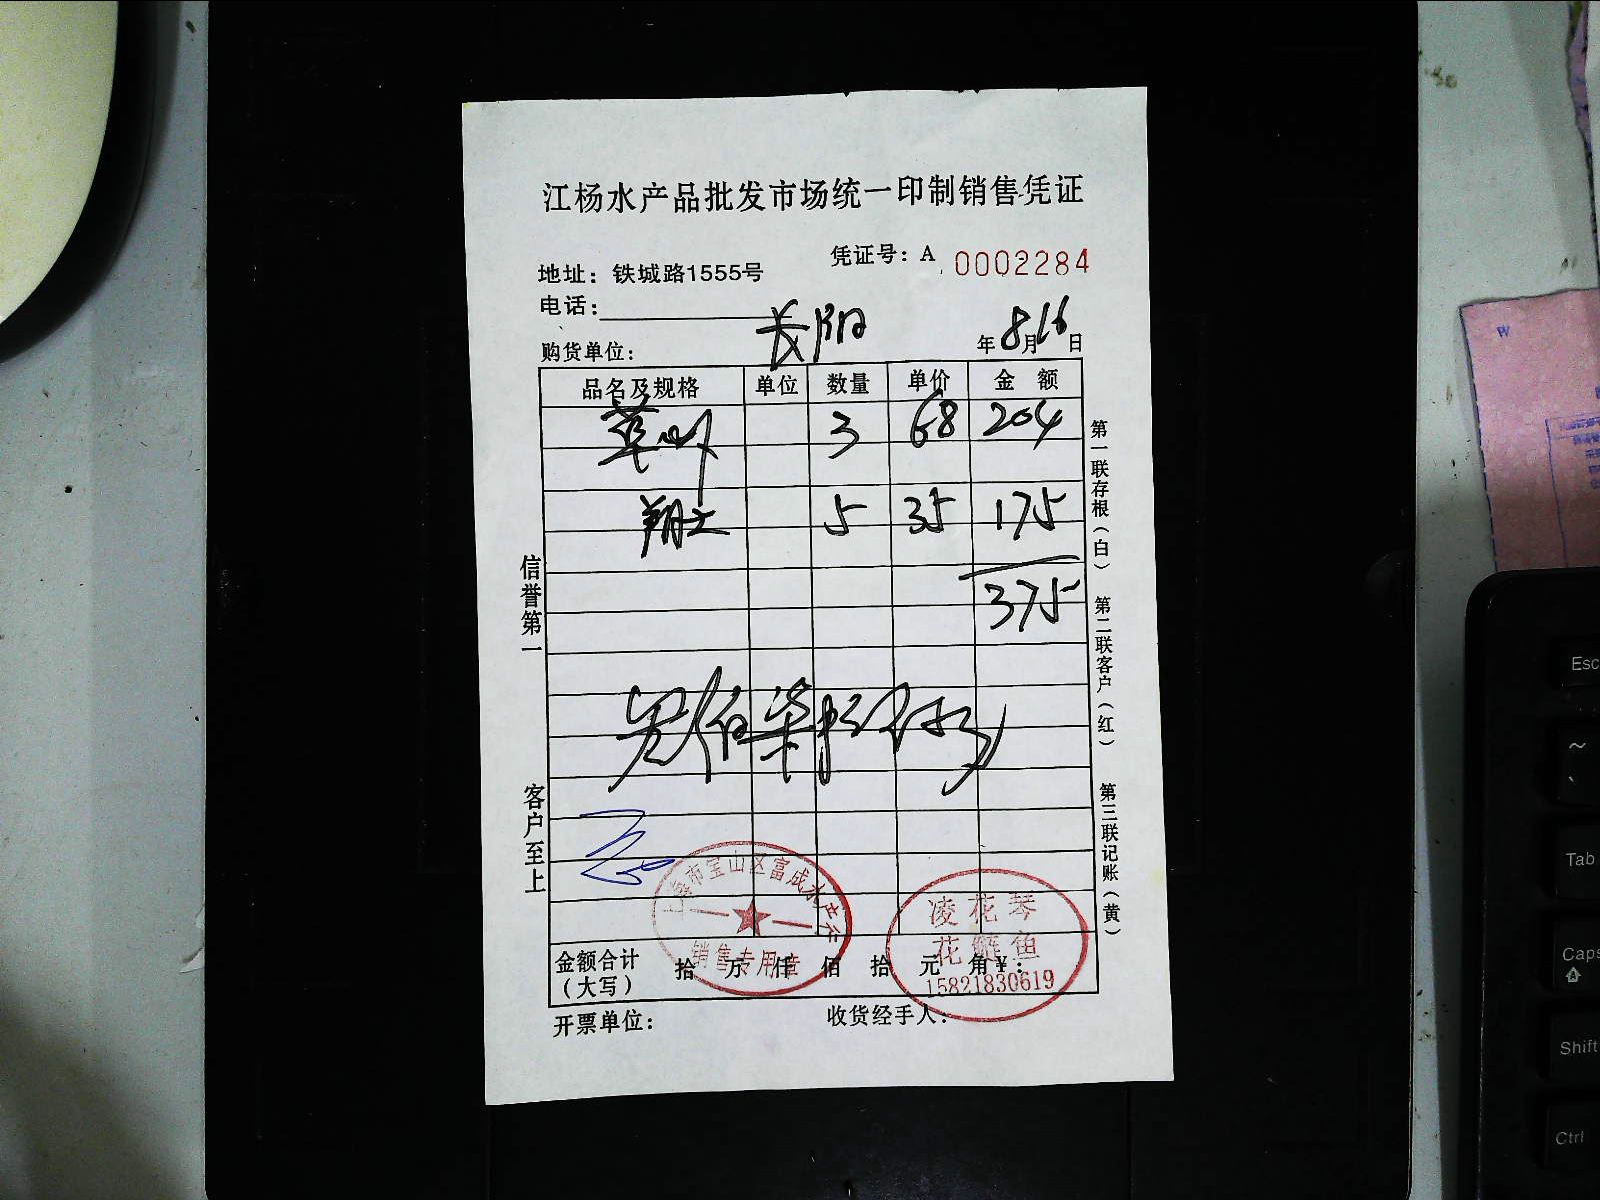 江杨水产品批发市场统一印制销售凭证
凭证号：A 0002284
地址：铁城路1555号
电话：
购货单位： 长阳 年8月16日
品名及规格 单位 数量 单价 金 额
3 68 204
5 35 175
375
信誉第一
客户至上
第一联存根（白）
第二联客户（红）
第三联记账（黄）
上海市宝山区富成水产行
销售专用章
凌花琴
花鲢鱼
15821830619
金额合计（大写） 拾 万 仟 佰 拾 元 角￥：
开票单位： 收货经手人：
W
Esc
~
Tab
Caps
Shift
Ctrl